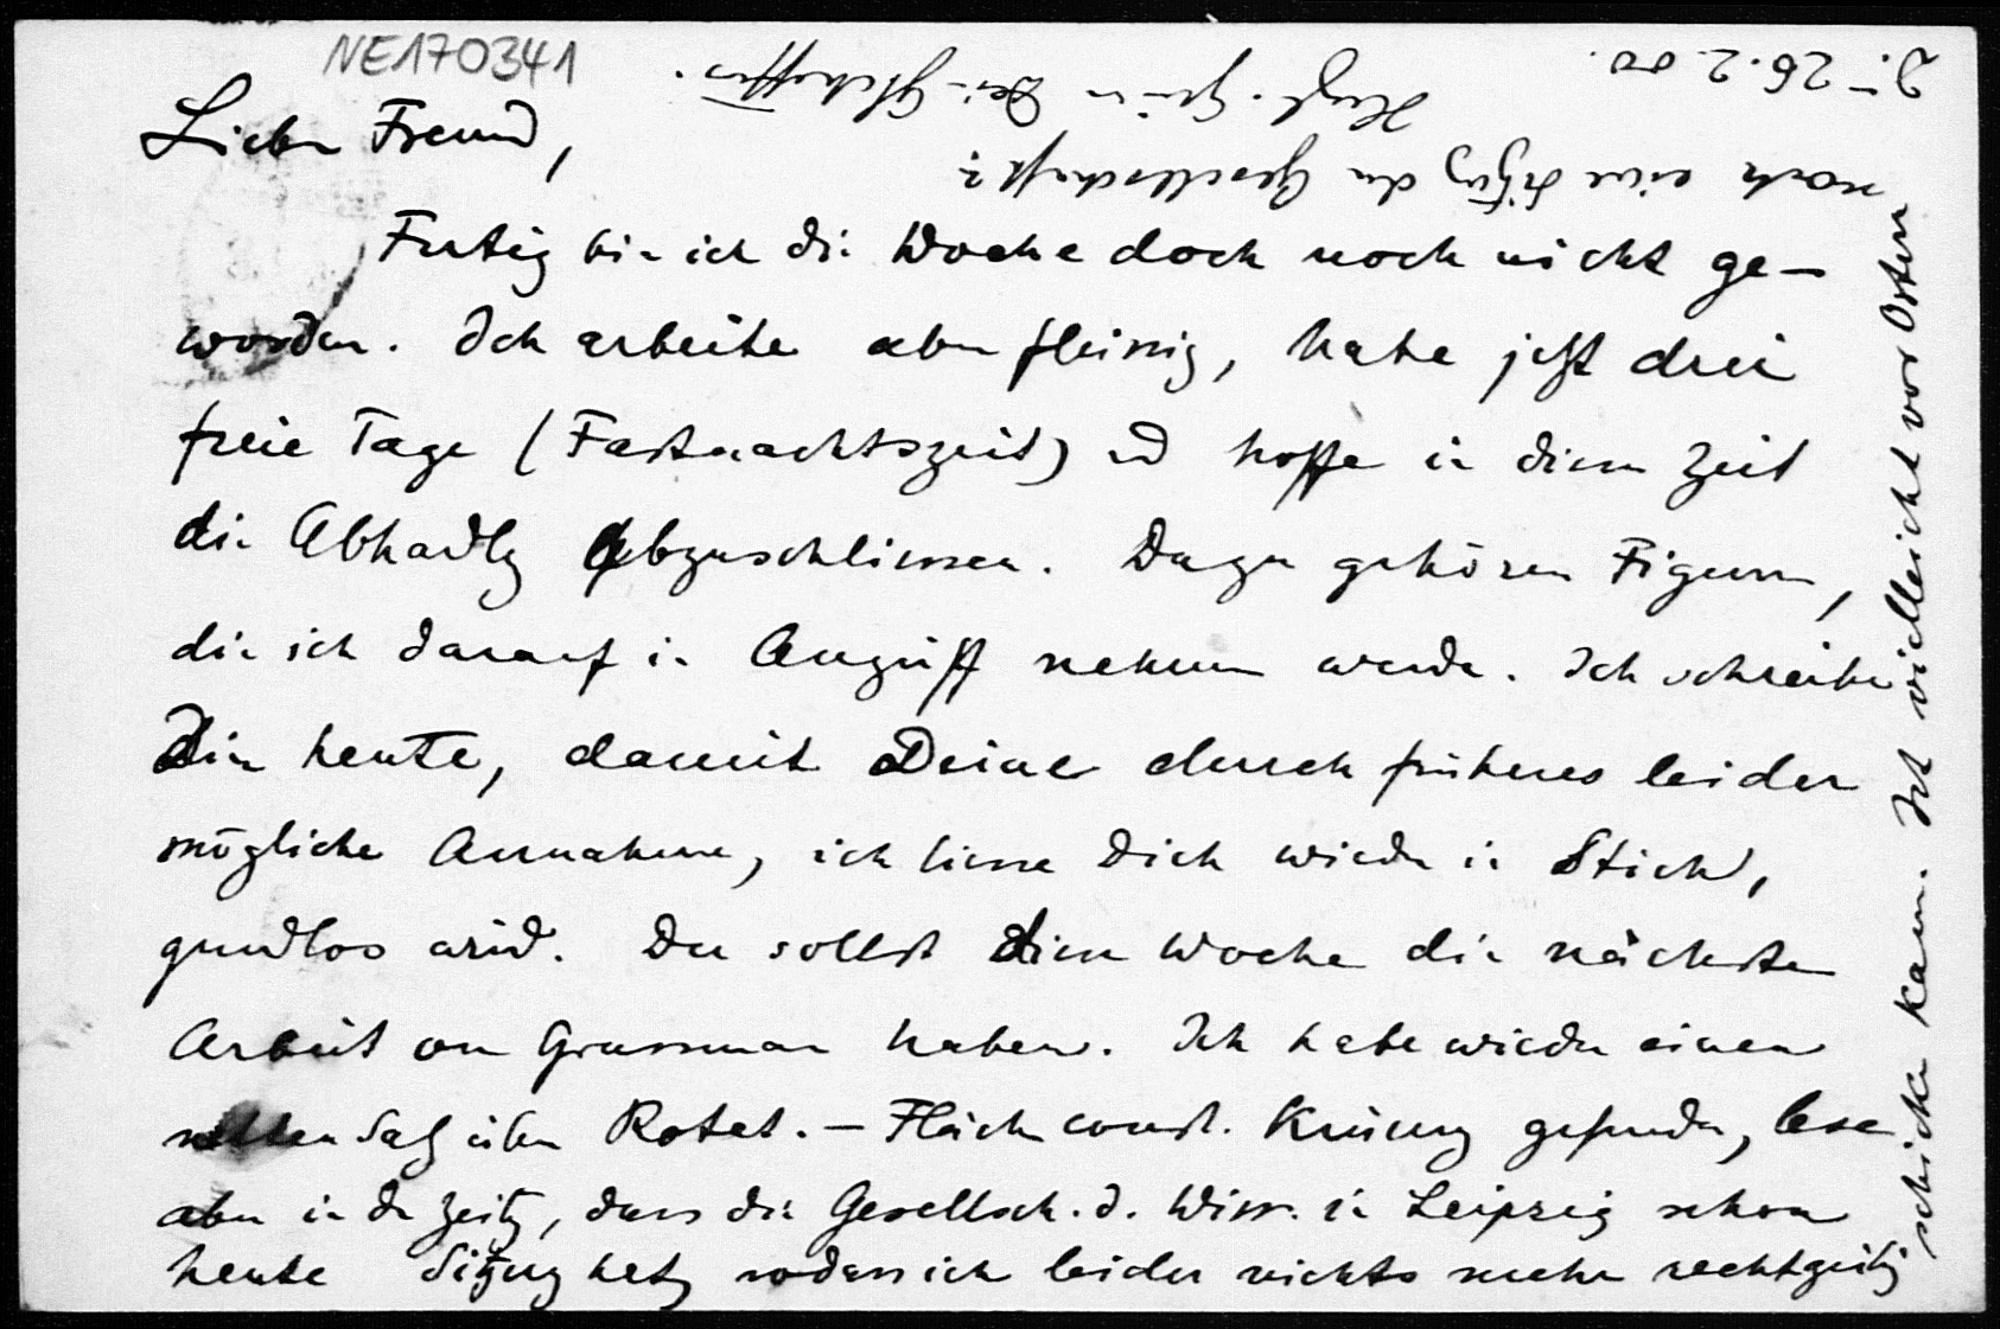 NE170341
D. 26.2.00.
Lieber Freund,
Fertig bin ich die Woche doch noch nicht ge-
worden. Ich arbeite aber fleissig, habe jetzt drei
freie Tage (Fastnachtszeit) und hoffe in dieser Zeit
die Abhandlg abzuschliessen. Dazu gehören Figuren,
die ich darauf in Angriff nehmen werde. Ich schreibe
Dir heute, damit Deine durch früheres leider
mögliche Annahme, ich liesse Dich wieder in Stich,
grundlos wird. Du sollst diese Woche die nächste
Arbeit von Grassmann haben. Ich habe wieder einen
netten Satz über Rotat.-Fläch const. Krümg gefunden, lese
aber in der Zeitg, dass die Gesellsch. d. Wiss. in Leipzig schon
heute Sitzung hat, sodass ich leider nichts mehr rechtzeitig
schicken kann. Ist vielleicht vor Ostern
noch eine Sitzung der Gesellschaft?
Herzl. Gruss Dein